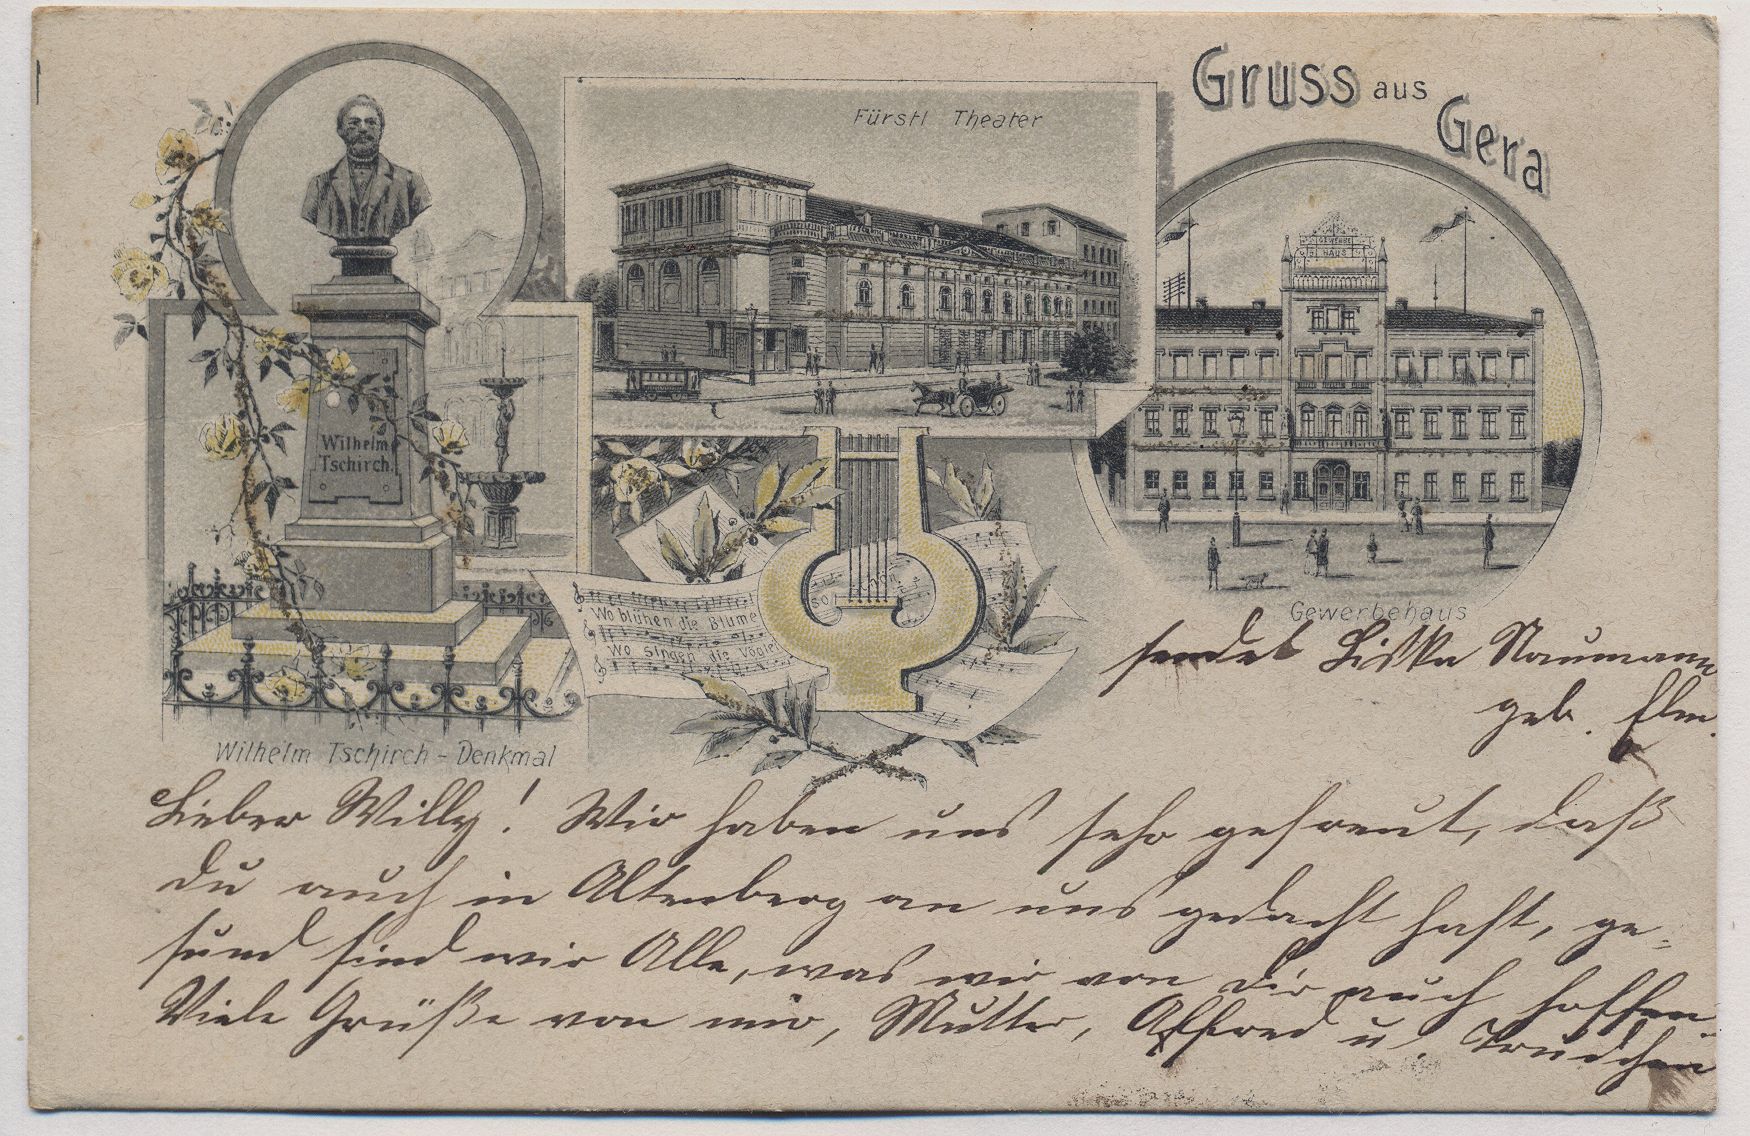 Gruss aus
Gera
Fürstl Theater
GEWERBE
HAUS
Wilhelm
Tschirch.
Wo blühen die Blume
so schön
Wo singen die Vögle
Gewerbehaus
Wilhelm Tschirch - Denkmal
sendet Naumann
geb.
Lieber Willy! Wir haben uns sehr gefreut, daß
du auch in Altenberg an uns gedacht hast, ge-
sund sind wir Alle, was wir von Dir auch hoffen.
Viele Grüße von mir, Mutter, Alfred u. Trudchen